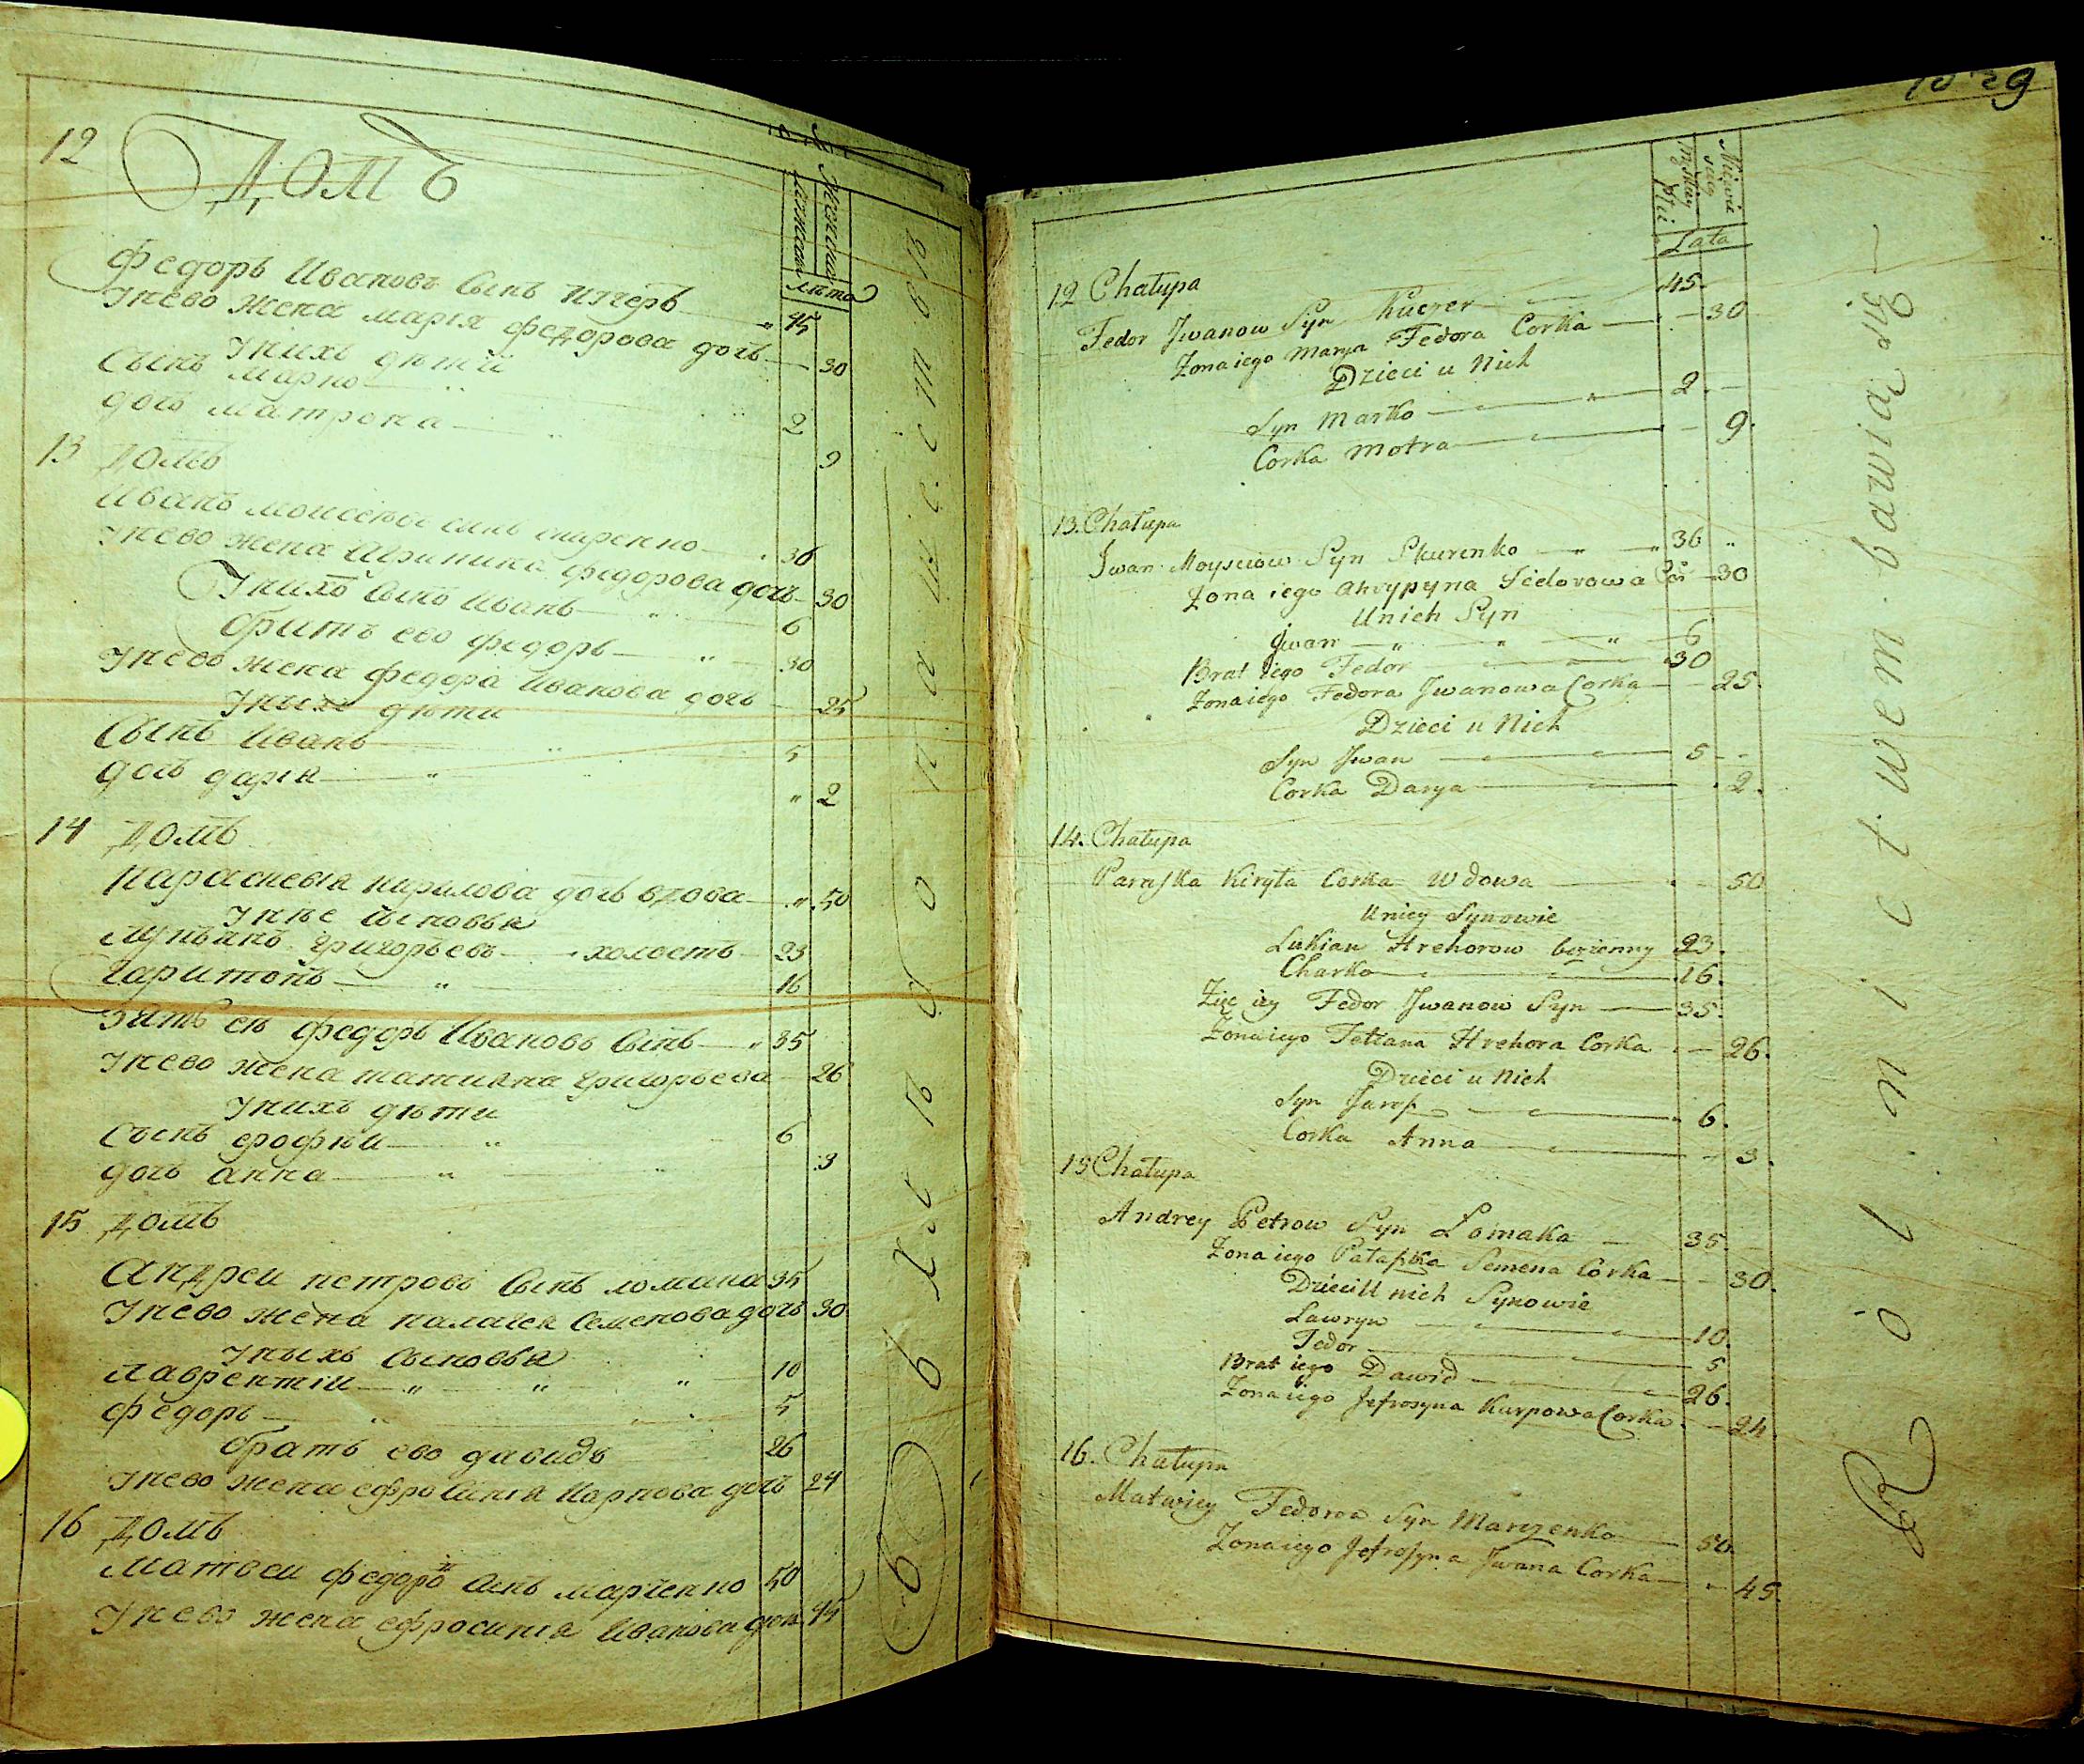 12 Домъ
Мужеска
Женска
лѣта
Федоръ Ивановъ сынъ кучеръ 45
У нево жена марія федорова дочь 30
У нихъ дѣти
Сынъ марко 2
дочь матрона 9
13 Домъ
Иванъ моисеевъ сынъ шкуренко 36
У нево жена Агрипина федорова дочь 30
У нихъ сынъ Иванъ 6
братъ ево федоръ 30
У нево жена федора Иванова дочь 25
У ныхъ дѣти
Сынъ Иванъ 5
дочь дарія 2
14 Домъ
Параскевія кирилова дочь вдова 50
У нее сыновья
Лукьянъ григорьевъ холостъ 23
Харитонъ 16
Зять ея федоръ Ивановъ сынъ 35
У нево жена татияна григорьева 26
У нихъ дѣти
Сынъ ерофѣй 6
дочь анна 3
15 Домъ
Андреи петровъ сынъ ломака 35
У нево жена палагея Семенова дочь 30
У ныхъ сыновья
Лаврентіи 10
федоръ 5
братъ ево давидъ 26
У нево жена ефросинія Карпова дочь 24
16 Домъ
Матвеи федоровъ сынъ марченко 50
У нево жена ефросинія Иванова дочь 45
1029
Męskiey Płci
Niewie
scie
Lata
12 Chałupa
Fedor Jwanow Syn Kuczer 45
Zona iego Marya Fedora Corka 30
Dzieci u Nich
Syn Marko 2
Corka Motra 9
13. Chałupa
Jwan Moysciow Syn Skurenko 36
Zona iego Ahrypyna Fiedorowa Cor 30
U nich Syn
Jwan 6
Brat iego Fedor 30
Zona iego Fedora Jwanowa Corka 25
Dzieci u Nich
Syn Jwan 5
Corka Darya 2
14. Chałupa
Paraska Kiryła Corka Wdowa 50
U niey Synowie
Lukian Hrehorow bezzenny 23
Charko 16
Zięc iey Fedor Jwanow Syn 35
Zona iego Tetiana Hrehora Corka 26
Dzieci u Nich
Syn Jarof 6
Corka Anna 3
15 Chałupa
Andrey Petrow Syn Łomaka 35
Zona iego Pałaszka Semena Corka 30
Dzieci U nich Synowie
Ławryn 10
Fedor 5
Brat iego Dawid 26
Zona iego Jefrosyna Karpowa Corka 24
16. Chałupa
Matwiey Fedorow Syn Marczenko 50
Zona iego Jefrosyna Jwana Corka 45
Rólnictwem bawią się